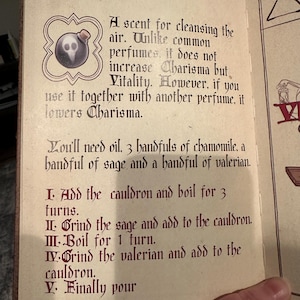 A scent for cleansing the
air. Unlike common
perfumes, it does not
increase Charisma but
Vitality. However, if you
use it together with another perfume, it
lowers Charisma.
You'll need oil, 3 handfuls of chamomile, a
handful of sage and a handful of valerian.
I. Add the cauldron and boil for 3
turns.
II. Grind the sage and add to the cauldron.
III. Boil for 1 turn.
IV. Grind the valerian and add to the
cauldron.
V. Finally pour